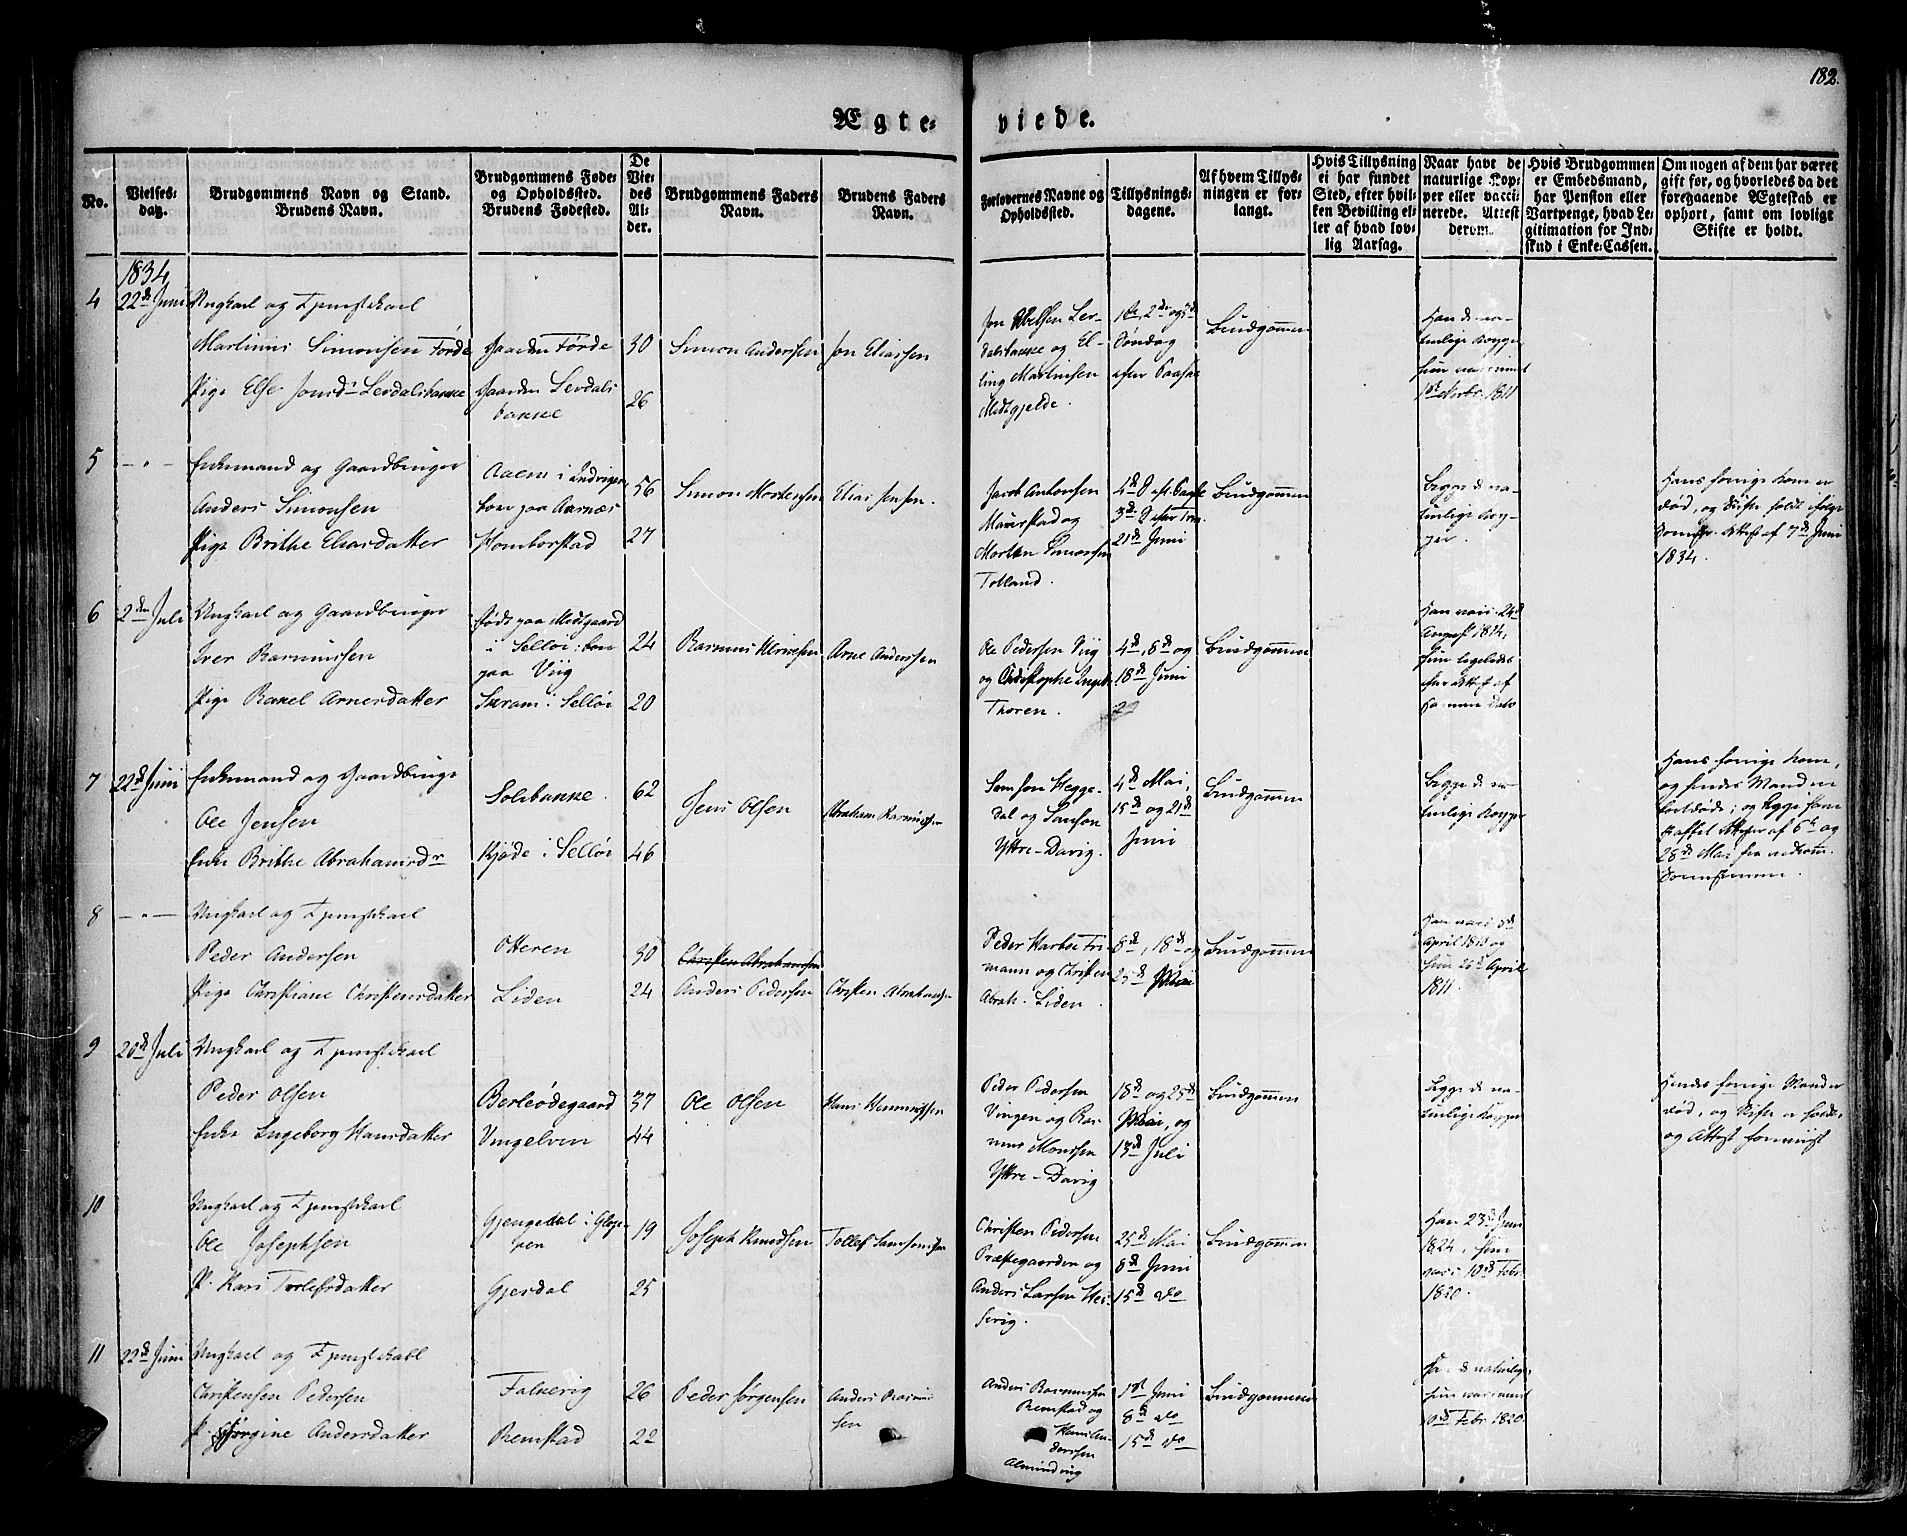 182.
Ægte=
viede.
No.
Vielses=
dag.
Brudgommens Navn og Stand.
Brudens Navn.
Brudgommens Føde=
og Opholdssted.
Brudens Fødested.
De
Vie=
des
Al=
der.
Brudgommens Faders
Navn.
Brudens Faders
Navn.
Forlovernes Navne og
Opholdssted.
Tillysnings=
dagene.
Af hvem Tillys=
ningen er for=
langt.
Hvis Tillysning
ei har fundet
Sted, efter hvil=
ken Bevilling el=
ler af hvad lov=
lig Aarsag.
Naar havt de
naturlige Kop=
per eller vacci=
nerede. Attest
derom.
Hvis Brudgommen
er Embedsmand,
har Pension eller
Vartpenge, hvad Le=
gitimation for Ind=
skud i Enke=Cassen.
Om nogen af dem har været
gift før, og hvorledes da det
foregaaende Ægteskab er
ophørt, samt om lovligt
Skifte er holdt.
1834
4
22de Juni
Ungkarl og Tjenestekarl
Martinus Simonsen Førde
Pige Else Jonsd. Levdalsbakke
Gaarden Førde
Gaarden Levdals
bakke
30
26
Simon Anderssen
Jon Eliassen
Jon Abelsen Lev-
dalsbakke og El-
ling Martinsen
Midtgjelde.
1ste, 2de og 3de
Søndag
efter Paaske
Brudgommen
Han de na-
turlige Kopper
hun vaccineret
1811
5
Enkemand og Gaardbruger
Anders Simonsen
Pige Brithe Eliasdatter
boer paa Aarnæs
Homborstad
56
27
Simon Mortensen
Elias Jensen.
Jacob Antonsen
Maurstad og
Morten Simonsen
Tolland.
21de Juni
Brudgommen
Begge de na-
turlige Kop-
per.
Hans forrige Kone er
død, og Skifte holdt ifølge
Attest af 7de Juni
1834.
6
2den Juli
Ungkarl og Gaardbruger
Iver Rasmussen
Pige Rakel Arnesdatter
født paa Midtgaard
i Selløi: boer
paa Viig
Skram i Selløi
24
20
Arne Anderssen
Ole Pedersen Viig
og Christophe
Thoren.
4de, 8de og
18de Juni
Brudgommen
Han vacc. 24de
August 1814,
hun ligeledes
efter Attest af
samme Dato
7
22de Juni
Enkemand og Gaardbruger
Ole Jensen
Enke Brithe Abrahamsdr
Solebakke.
Kjøde i Selløi
62
46
Jens Olsen
Abraham Rasmussen
Samson Hegge-
dal og Samson
Yttre-Davig.
4de Mai,
15de og 21de
Juni
Brudgommen
Begge de na-
turlige Kopper
Hans forrige Kone,
og hendes Mand er
28de Mai fra
8
Ungkarl og Tjenestekarl
Peder Andersen
Pige Christiane Christensdatter
Otteren
Liden
30
24
Christen Abrahamsen
Anders Pedersen
Christen Abrahamsen
Peder Harboe Fri-
mann og Christen
Abrah. Liden.
8de, 18de og
25de Mai
Brudgommen
Han vacc.
April 1815 og
hun 26de April
1811.
9
20de Juli
Ungkarl og Tjenestekarl
Peder Olsen
Enke Ingeborg Hansdatter
Berleødegaard
Vingelven
37
44
Ole Olsen
Hans Henningsen
Peder Pedersen
Vingen og Ras-
mus Monssen
Yttre-Davig
18de og 25de
Mai, og
13de Juli
Brudgommen
Begge de na-
turlige Kopper
Hendes forrige Mand er
død, og Skifte er holdt,
og Attest forevist
10
Ungkarl og Tjenestekarl
Ole Josephsen
P. Kari Torlefsdatter
Gjengedal i Glop-
pen
Gjerdal
19
25
Joseph Knudsen
Tollef Samsonsen
Christen Pedersen
Præstegaarden og
Anders Larsen
25de Mai
8de Juni
15de do
Brudgommen
Han 23de Juni
1824, hun
vacc. 10de Febr.
1820.
11
22de Juni
Ungkarl og Tjenestekarl
Christensen Pedersen
P. Jørgine Andersdatter
Falkevig
Remstad
26
22
Peder Jørgensen
Anders Rasmus-
sen
Anders Rasmussen
Remstad og
Hans An-
derssen
Almending
1ste Juni
8de do
15de do
Brudgommen
hun vaccineret
10de Febr. 1820.